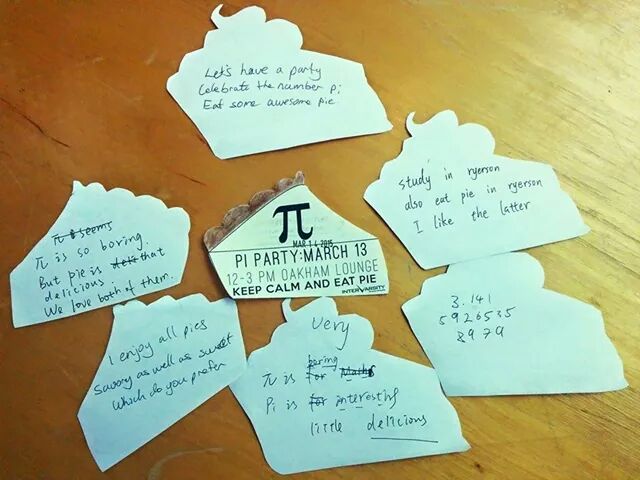 Let's have a party
Celebrate the number pi
Eat some awesome pie.
study in ryerson
also eat pie in ryerson
I like the latter
π seems
π is so boring.
But pie is that
delicious.
We love both of them.
π
MAR 14 2015
PI PARTY: MARCH 13
12-3 PM OAKHAM LOUNGE
KEEP CALM AND EAT PIE
INTERVARSITY
3.141
5926535
8979
I enjoy all pies
Savory as well as sweet
Which do you prefer
Very
π is for boring Maths
Pi is for interesting
little delicious